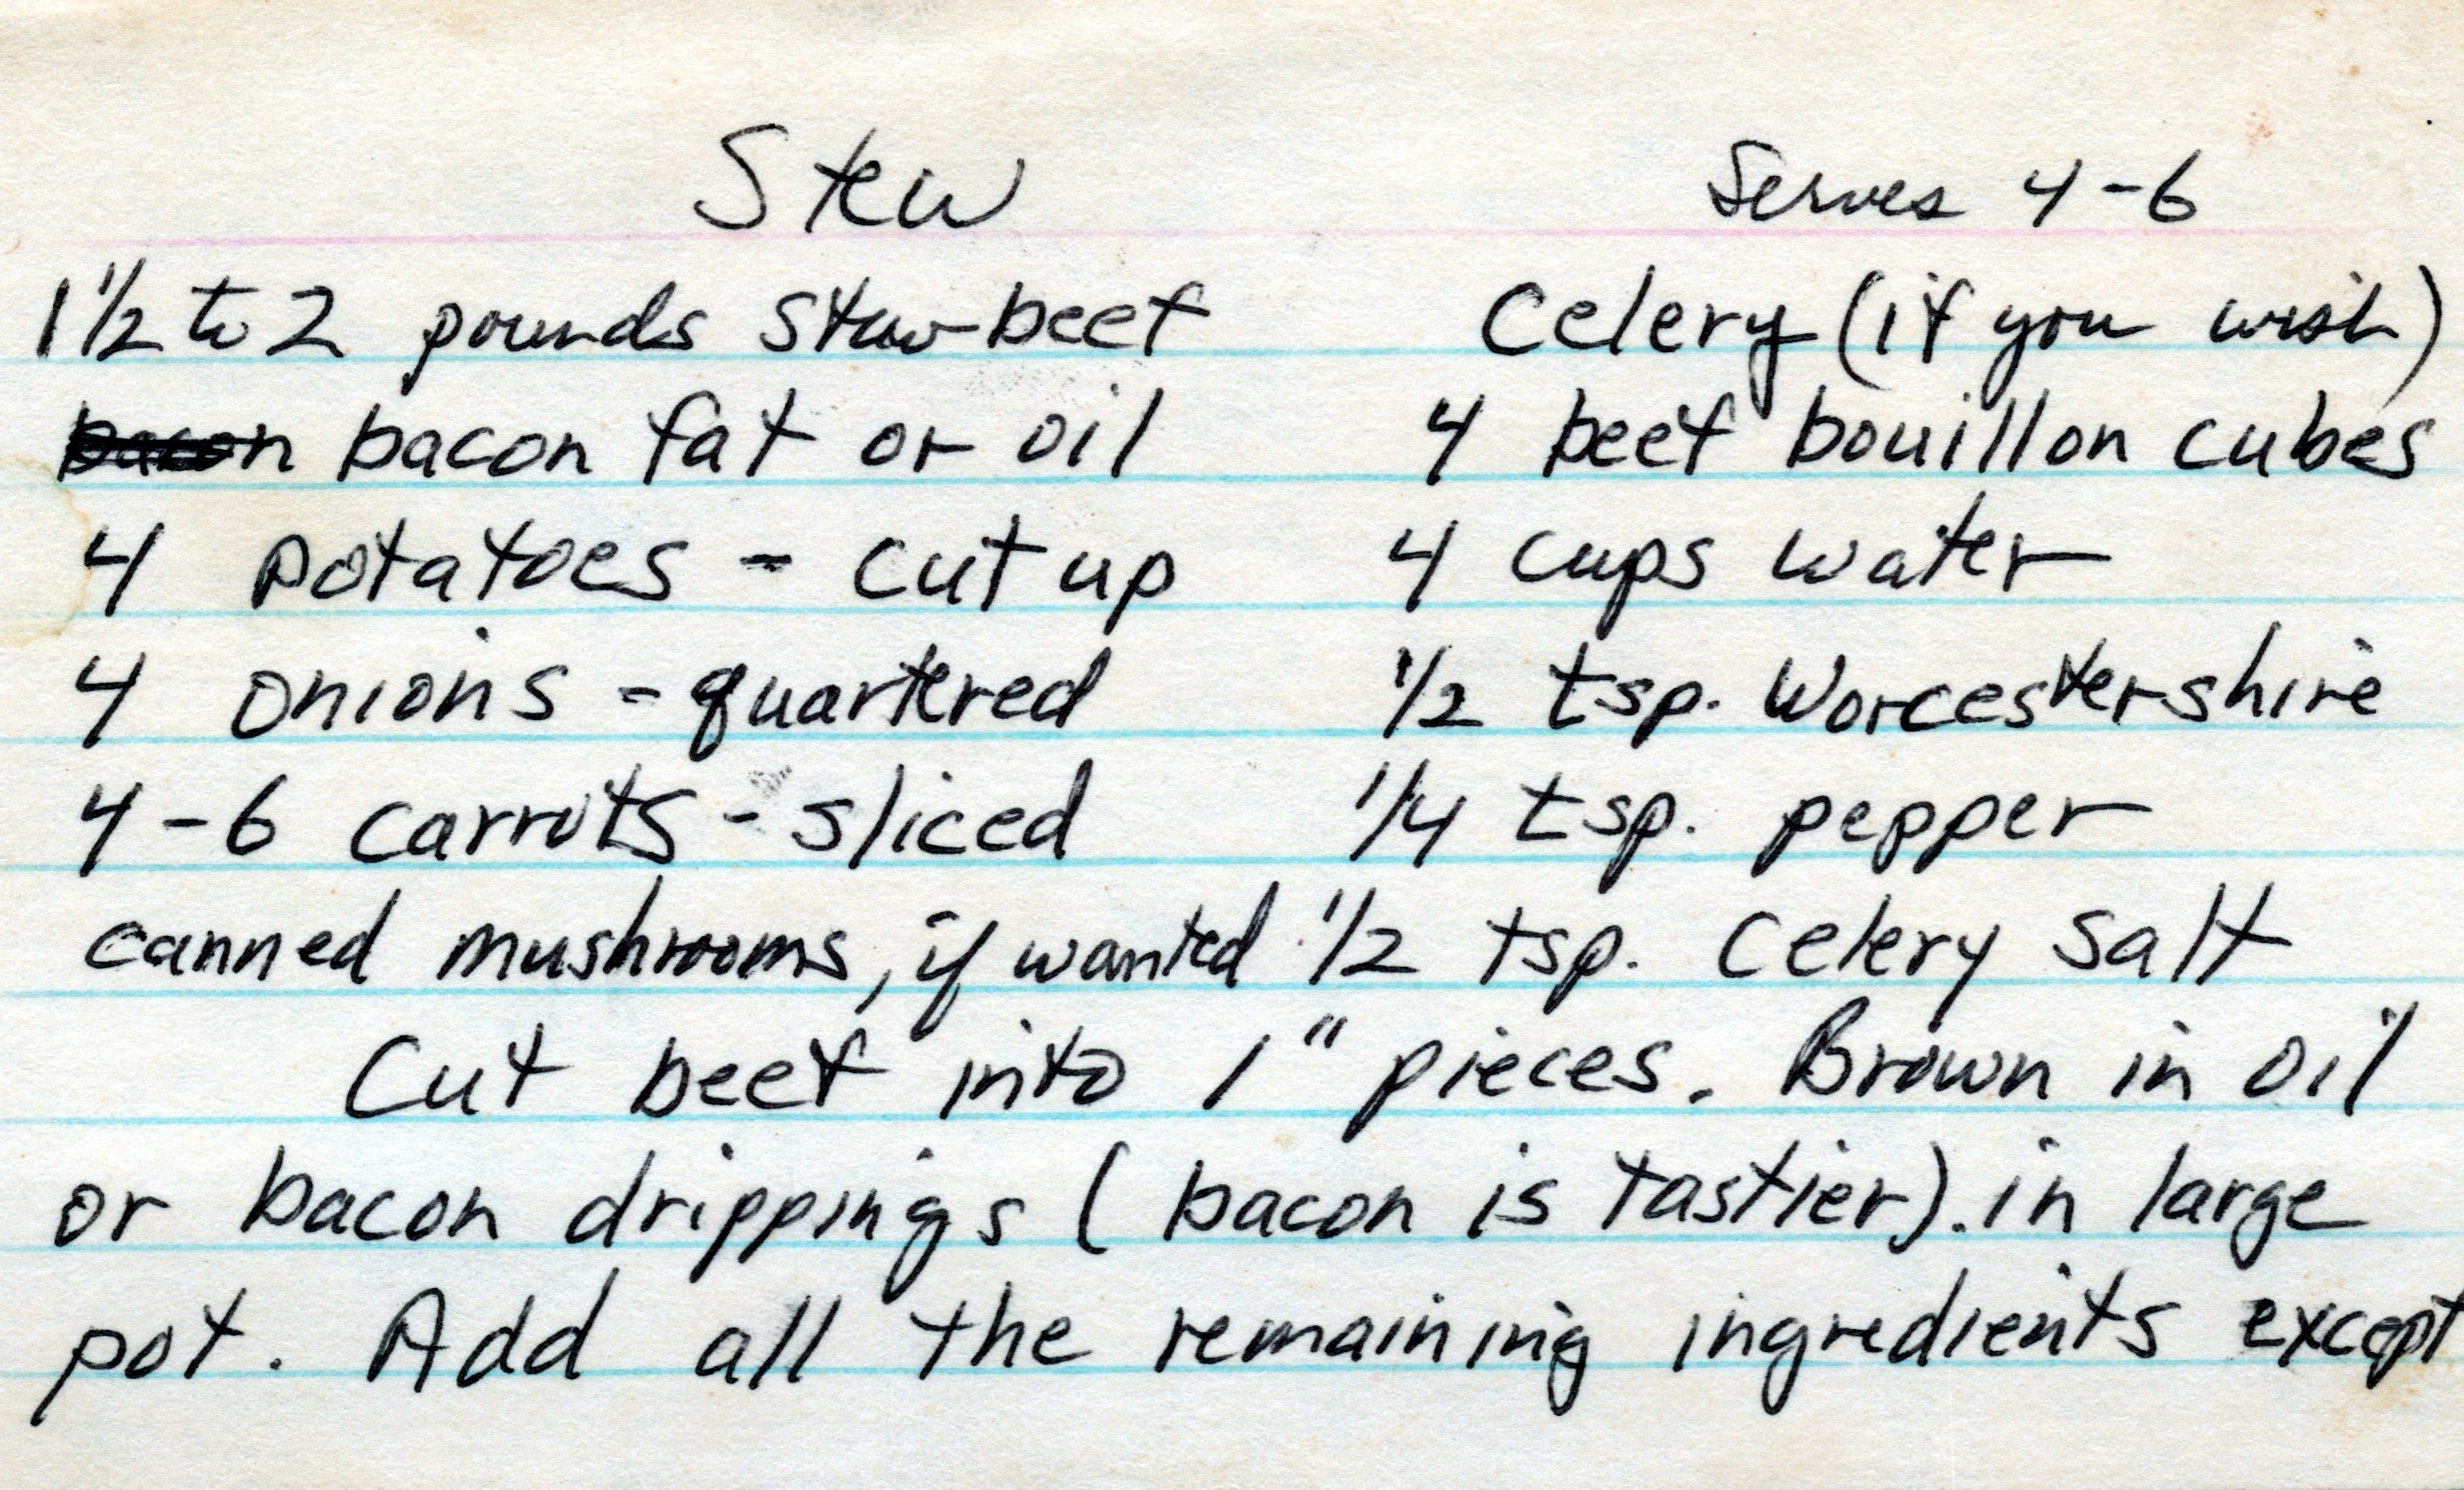 Stew
Serves 4-6
1 1/2 to 2 pounds stew beef
bacon bacon fat or oil
4 potatoes - cut up
4 onions - quartered
4-6 carrots - sliced
canned mushrooms, if wanted
Celery (if you wish)
4 beef bouillon cubes
4 cups water
1/2 tsp. Worcestershire
1/4 tsp. pepper
1/2 tsp. Celery Salt
Cut beef into 1" pieces. Brown in oil
or bacon drippings (bacon is tastier). in large
pot. Add all the remaining ingredients except